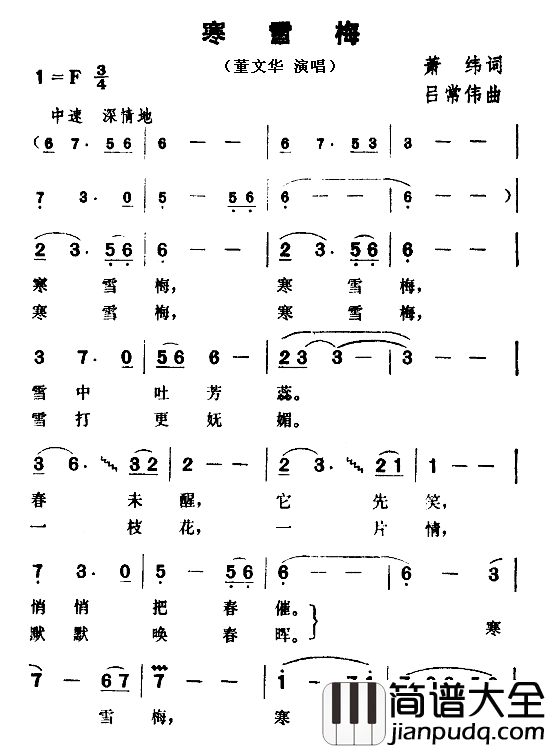 寒雪梅
(董文华 演唱)
1=F 3/4
萧纬词
吕常伟曲
中速 深情地
(6 7· 56 | 6 - - | 6 7· 53 | 3 - - |
7 3· 0 | 5 - 56 | 6 - - | 6 - - )|
2 3· 56 | 6 - - | 2 3· 56 | 6 - - |
寒 雪梅, 寒 雪梅,
寒 雪梅, 寒 雪梅,
3 7· 0 | 56 6 - | 23 3 - | 3 - - |
雪中 吐芳 蕊。
雪打 更妩 媚。
3 6· 32 | 2 - - | 2 3· 21 | 1 - - |
春 未醒, 它 先笑,
一 枝花, 一 片情,
7 3· 0 | 5 - 56 | 6 - - | 6 - 3 |
悄悄 把春 催。
默默 唤春 晖。 寒
7 - 67 | 7 - - | 1 - 7
雪 梅, 寒
简谱大全
jianpudq.com